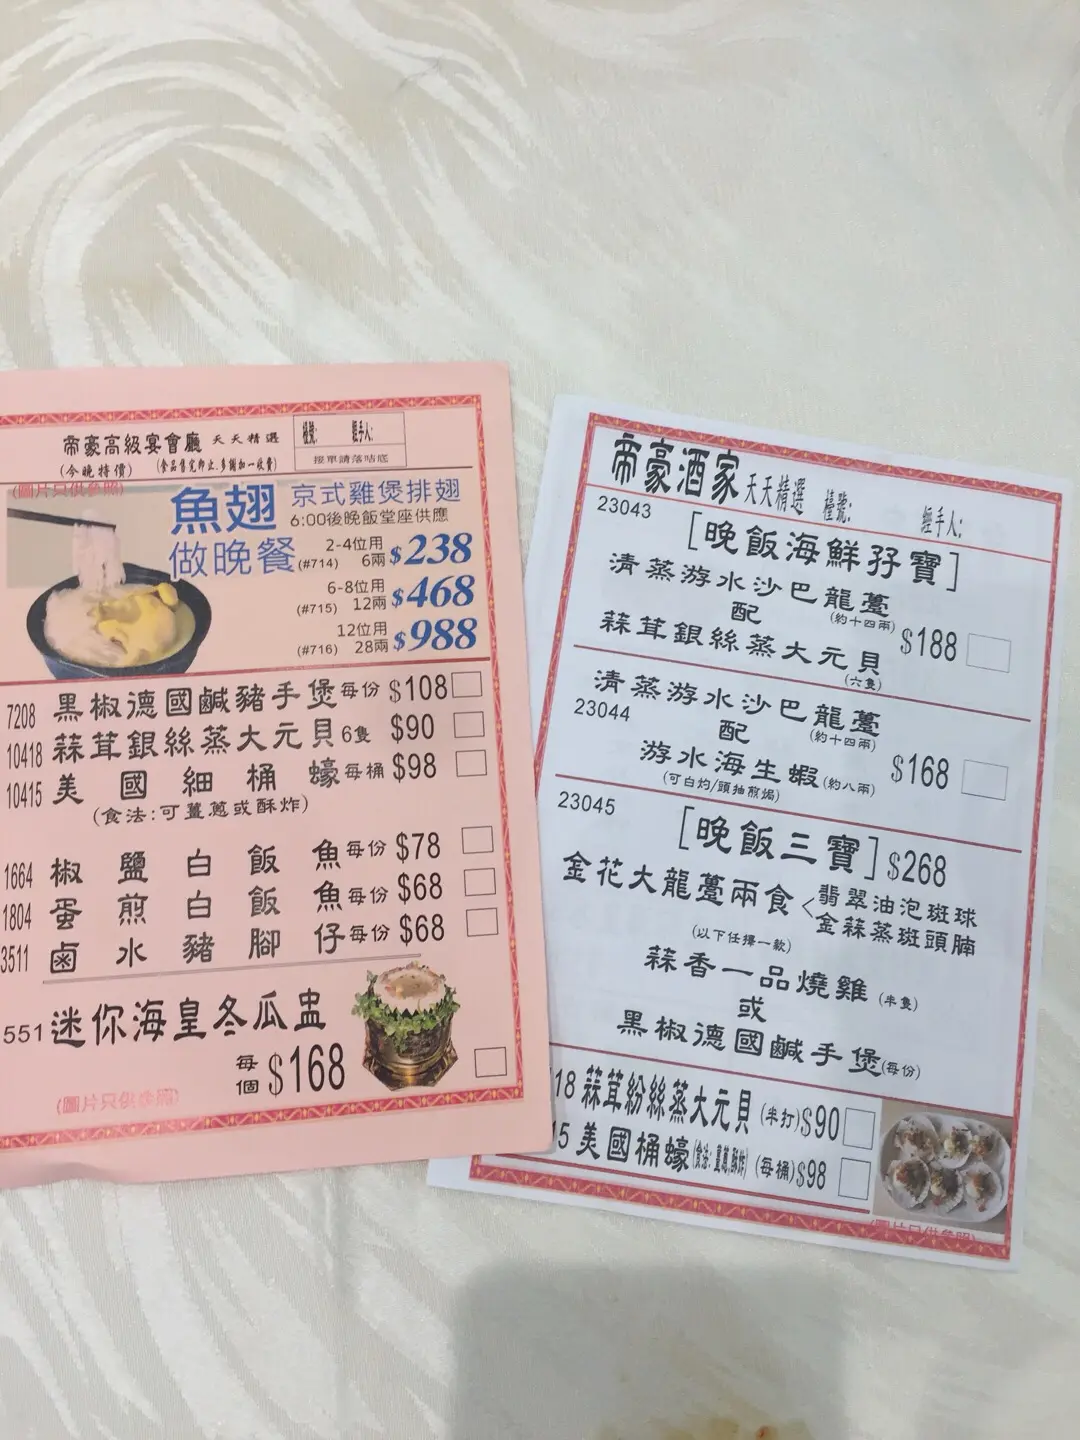 帝豪高級宴會廳 天天精選
檯號: 經手人:
(今晚特價) (食品售完即止.多謝加一收費)
接單請落咭底
(圖片只供參照)
魚翅 京式雞煲排翅
6:00後晚飯堂座供應
做晚餐
2-4位用
(#714) 6兩 $238
6-8位用
(#715) 12兩 $468
12位用
(#716) 28兩 $988
7208 黑椒德國鹹豬手煲 每份 $108
10418 蒜茸銀絲蒸大元貝 6隻 $90
10415 美國細桶蠔 每桶 $98
(食法:可薑蔥或酥炸)
1664 椒鹽白飯魚 每份 $78
1804 蛋煎白飯魚 每份 $68
3511 鹵水豬腳仔 每份 $68
551 迷你海皇冬瓜盅
每個 $168
(圖片只供參照)
帝豪酒家 天天精選 檯號: 經手人:
23043
[晚飯海鮮孖寶]
清蒸游水沙巴龍躉
配 (約十四兩)
蒜茸銀絲蒸大元貝 $188
(六隻)
清蒸游水沙巴龍躉
23044 配 (約十四兩)
游水海生蝦 (約八兩) $168
(可白灼/頭抽煎焗)
23045
[晚飯三寶] $268
金花大龍躉兩食 < 翡翠油泡斑球
金蒜蒸斑頭腩
(以下任擇一款)
蒜香一品燒雞 (半隻)
或
黑椒德國鹹手煲 (每份)
18 蒜茸粉絲蒸大元貝 (半打) $90
15 美國桶蠔 (食法:薑蔥,酥炸) (每桶) $98
(圖片只供參照)